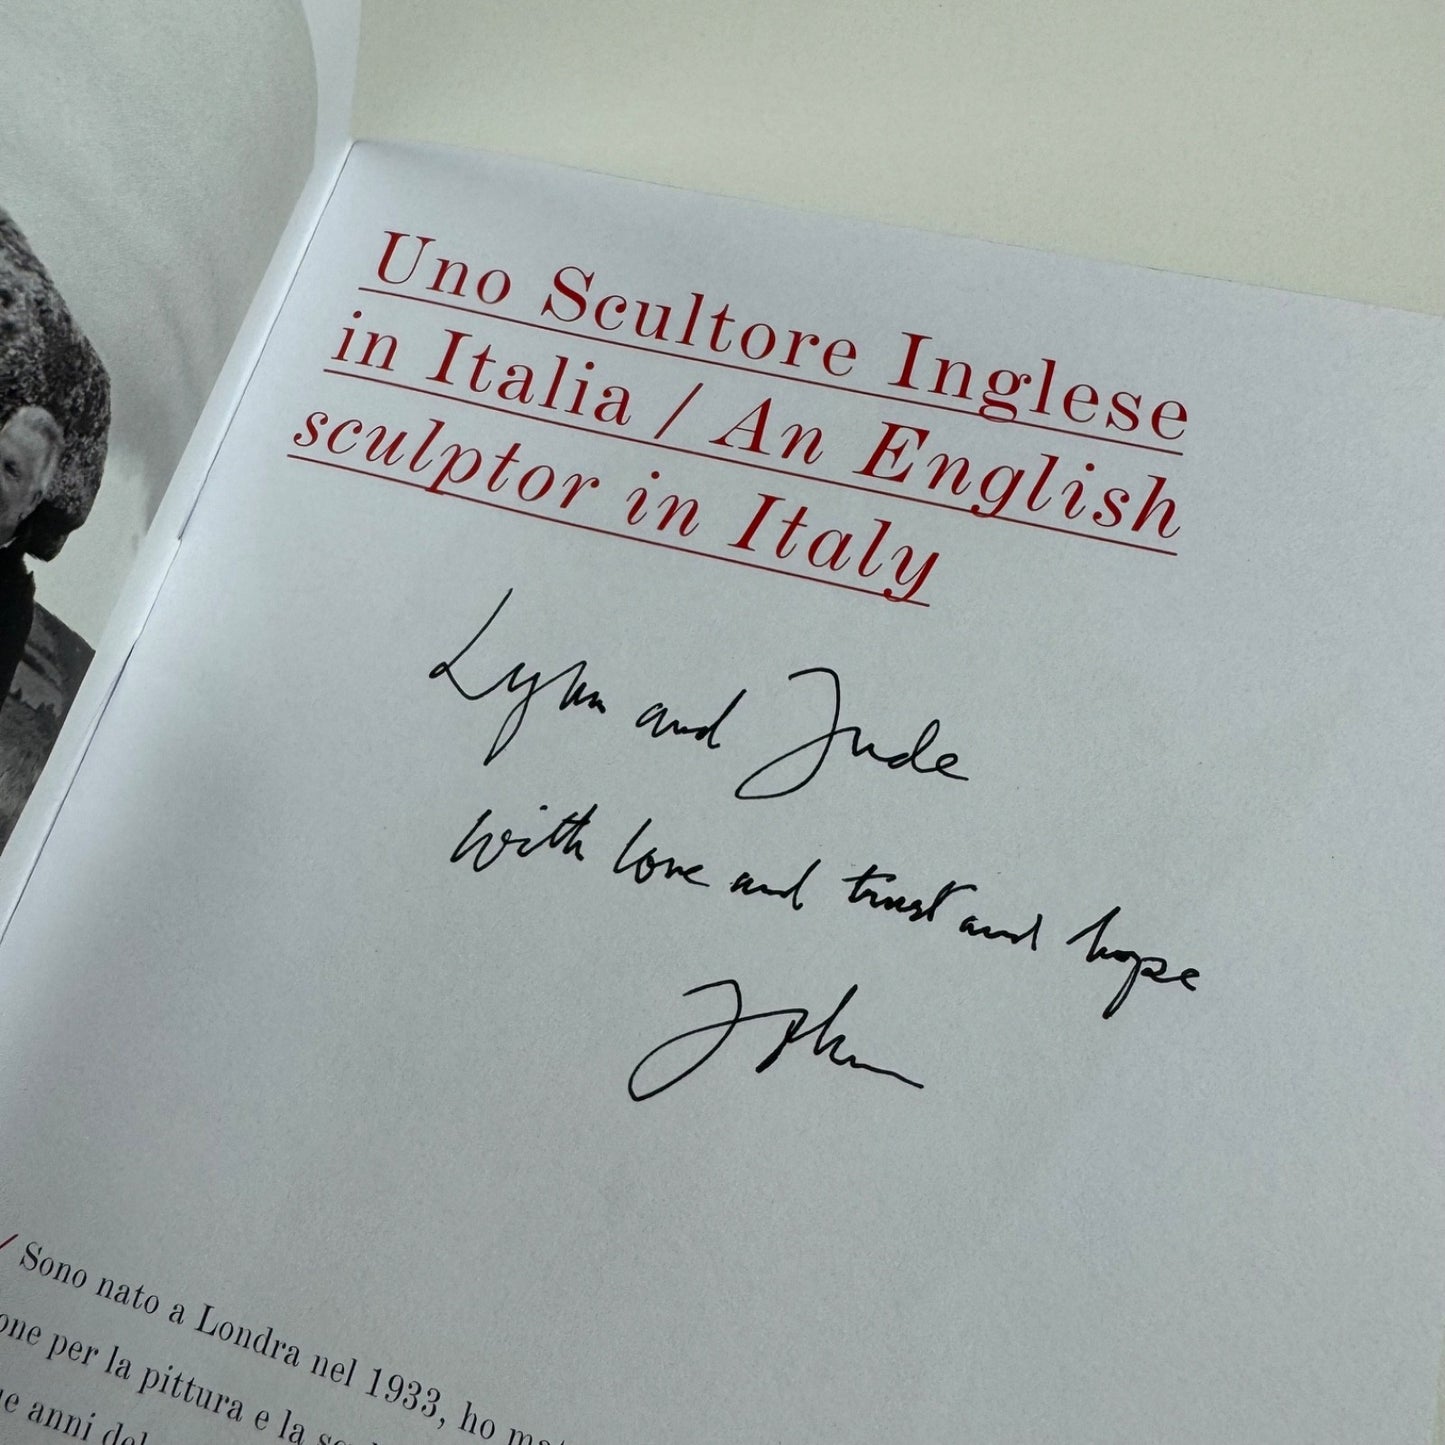 Uno Scultore Inglese
in Italia / An English
sculptor in Italy
Lynn and Jude
with love and trust and hope
John
/ Sono nato a Londra nel 1933, ho
one per la pittura e la
anni del